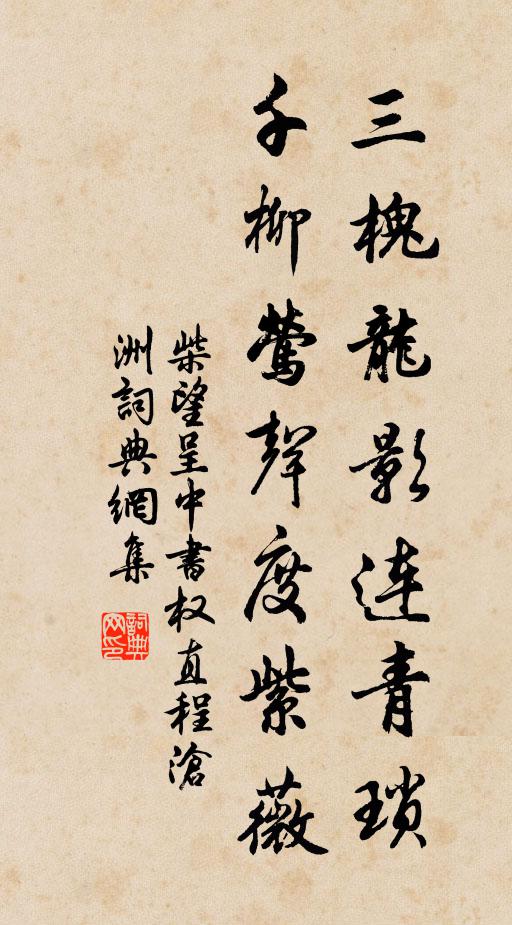 三槐龍影連青瑣
千柳鶯聲度紫薇
柴望呈中書权直程滄
洲詞典網集
詞典网印